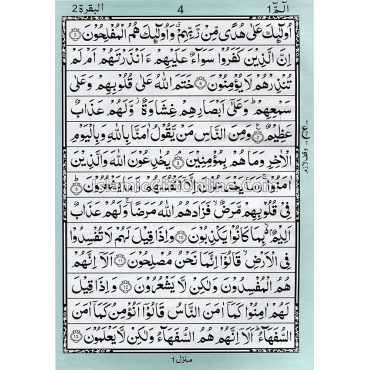 البقرة ٢ 4 الٓمّٓ ١
اُولٰٓئِكَ عَلٰى هُدًى مِّنْ رَّبِّهِمْ وَاُولٰٓئِكَ هُمُ الْمُفْلِحُوْنَ ۝
اِنَّ الَّذِيْنَ كَفَرُوْا سَوَآءٌ عَلَيْهِمْ ءَاَنْذَرْتَهُمْ اَمْ لَمْ
تُنْذِرْهُمْ لَا يُؤْمِنُوْنَ ۝ خَتَمَ اللّٰهُ عَلٰى قُلُوْبِهِمْ وَعَلٰى
سَمْعِهِمْ ؕ وَعَلٰٓى اَبْصَارِهِمْ غِشَاوَةٌ ؗ وَّلَهُمْ عَذَابٌ
عَظِيْمٌ ۝ وَمِنَ النَّاسِ مَنْ يَّقُوْلُ اٰمَنَّا بِاللّٰهِ وَبِالْيَوْمِ
الْاٰخِرِ وَمَا هُمْ بِمُؤْمِنِيْنَ ۝ يُخٰدِعُوْنَ اللّٰهَ وَالَّذِيْنَ
اٰمَنُوْا ۚ وَمَا يَخْدَعُوْنَ اِلَّآ اَنْفُسَهُمْ وَمَا يَشْعُرُوْنَ ۝
فِيْ قُلُوْبِهِمْ مَّرَضٌ ۙ فَزَادَهُمُ اللّٰهُ مَرَضًا ۚ وَلَهُمْ عَذَابٌ
اَلِيْمٌۢ ۙ بِمَا كَانُوْا يَكْذِبُوْنَ ۝ وَاِذَا قِيْلَ لَهُمْ لَا تُفْسِدُوْا
فِى الْاَرْضِ ۙ قَالُوْٓا اِنَّمَا نَحْنُ مُصْلِحُوْنَ ۝ اَلَآ اِنَّهُمْ
هُمُ الْمُفْسِدُوْنَ وَلٰكِنْ لَّا يَشْعُرُوْنَ ۝ وَاِذَا قِيْلَ
لَهُمْ اٰمِنُوْا كَمَآ اٰمَنَ النَّاسُ قَالُوْٓا اَنُؤْمِنُ كَمَآ اٰمَنَ
السُّفَهَآءُ ؕ اَلَآ اِنَّهُمْ هُمُ السُّفَهَآءُ وَلٰكِنْ لَّا يَعْلَمُوْنَ ۝
منزل ١